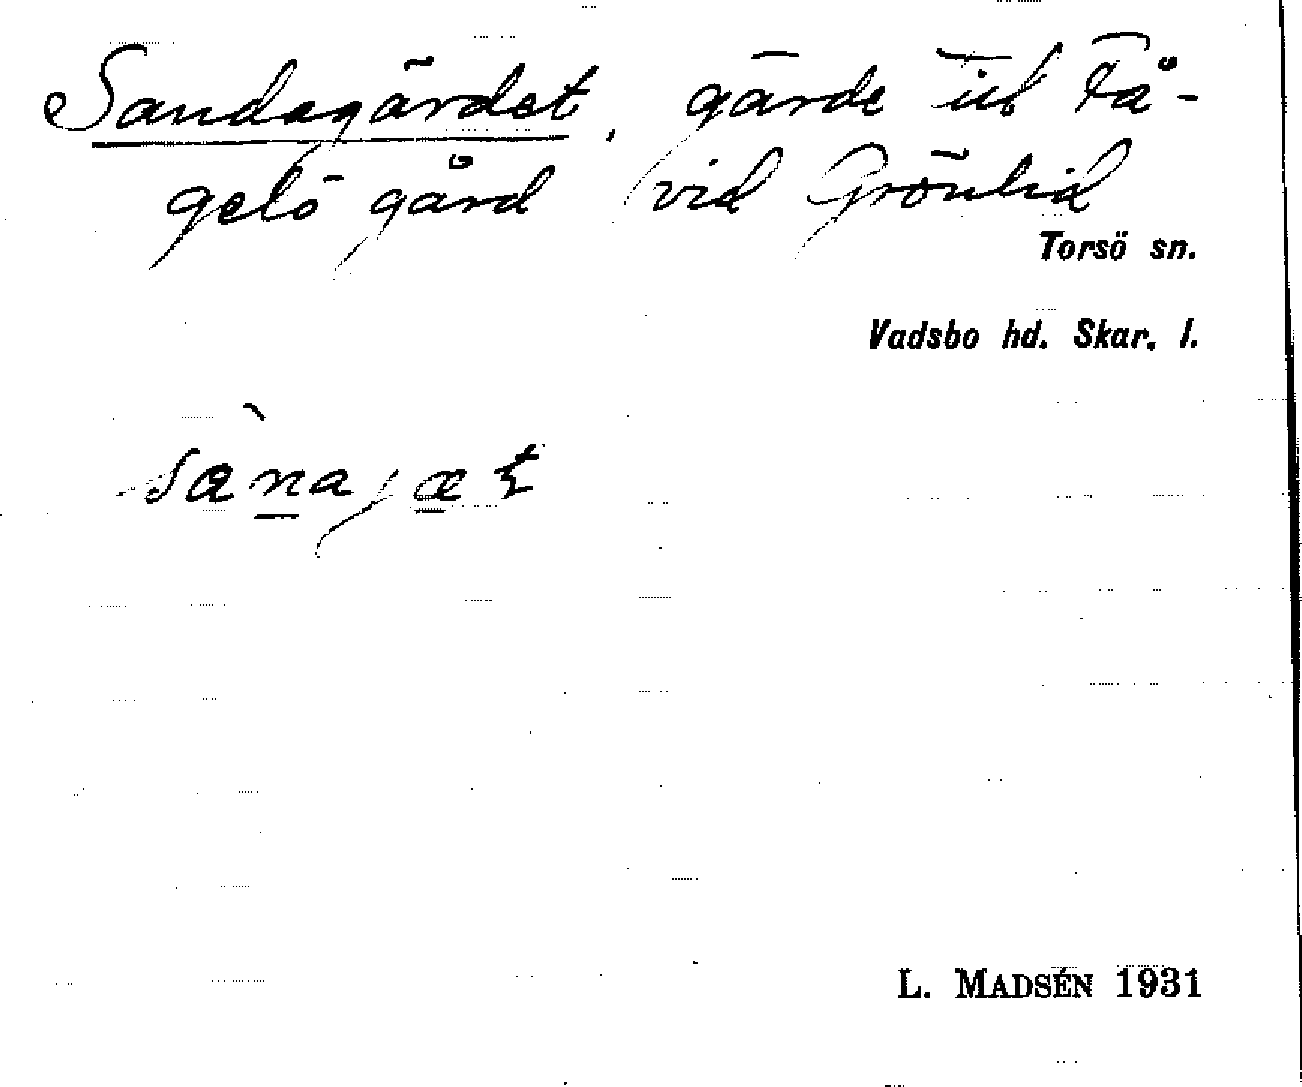 Sandagärdet, gärde till Få-
gelö gård vid Grönlid
Torsö sn.
Vadsbo hd. Skar. l.
L. MADSÉN 1931